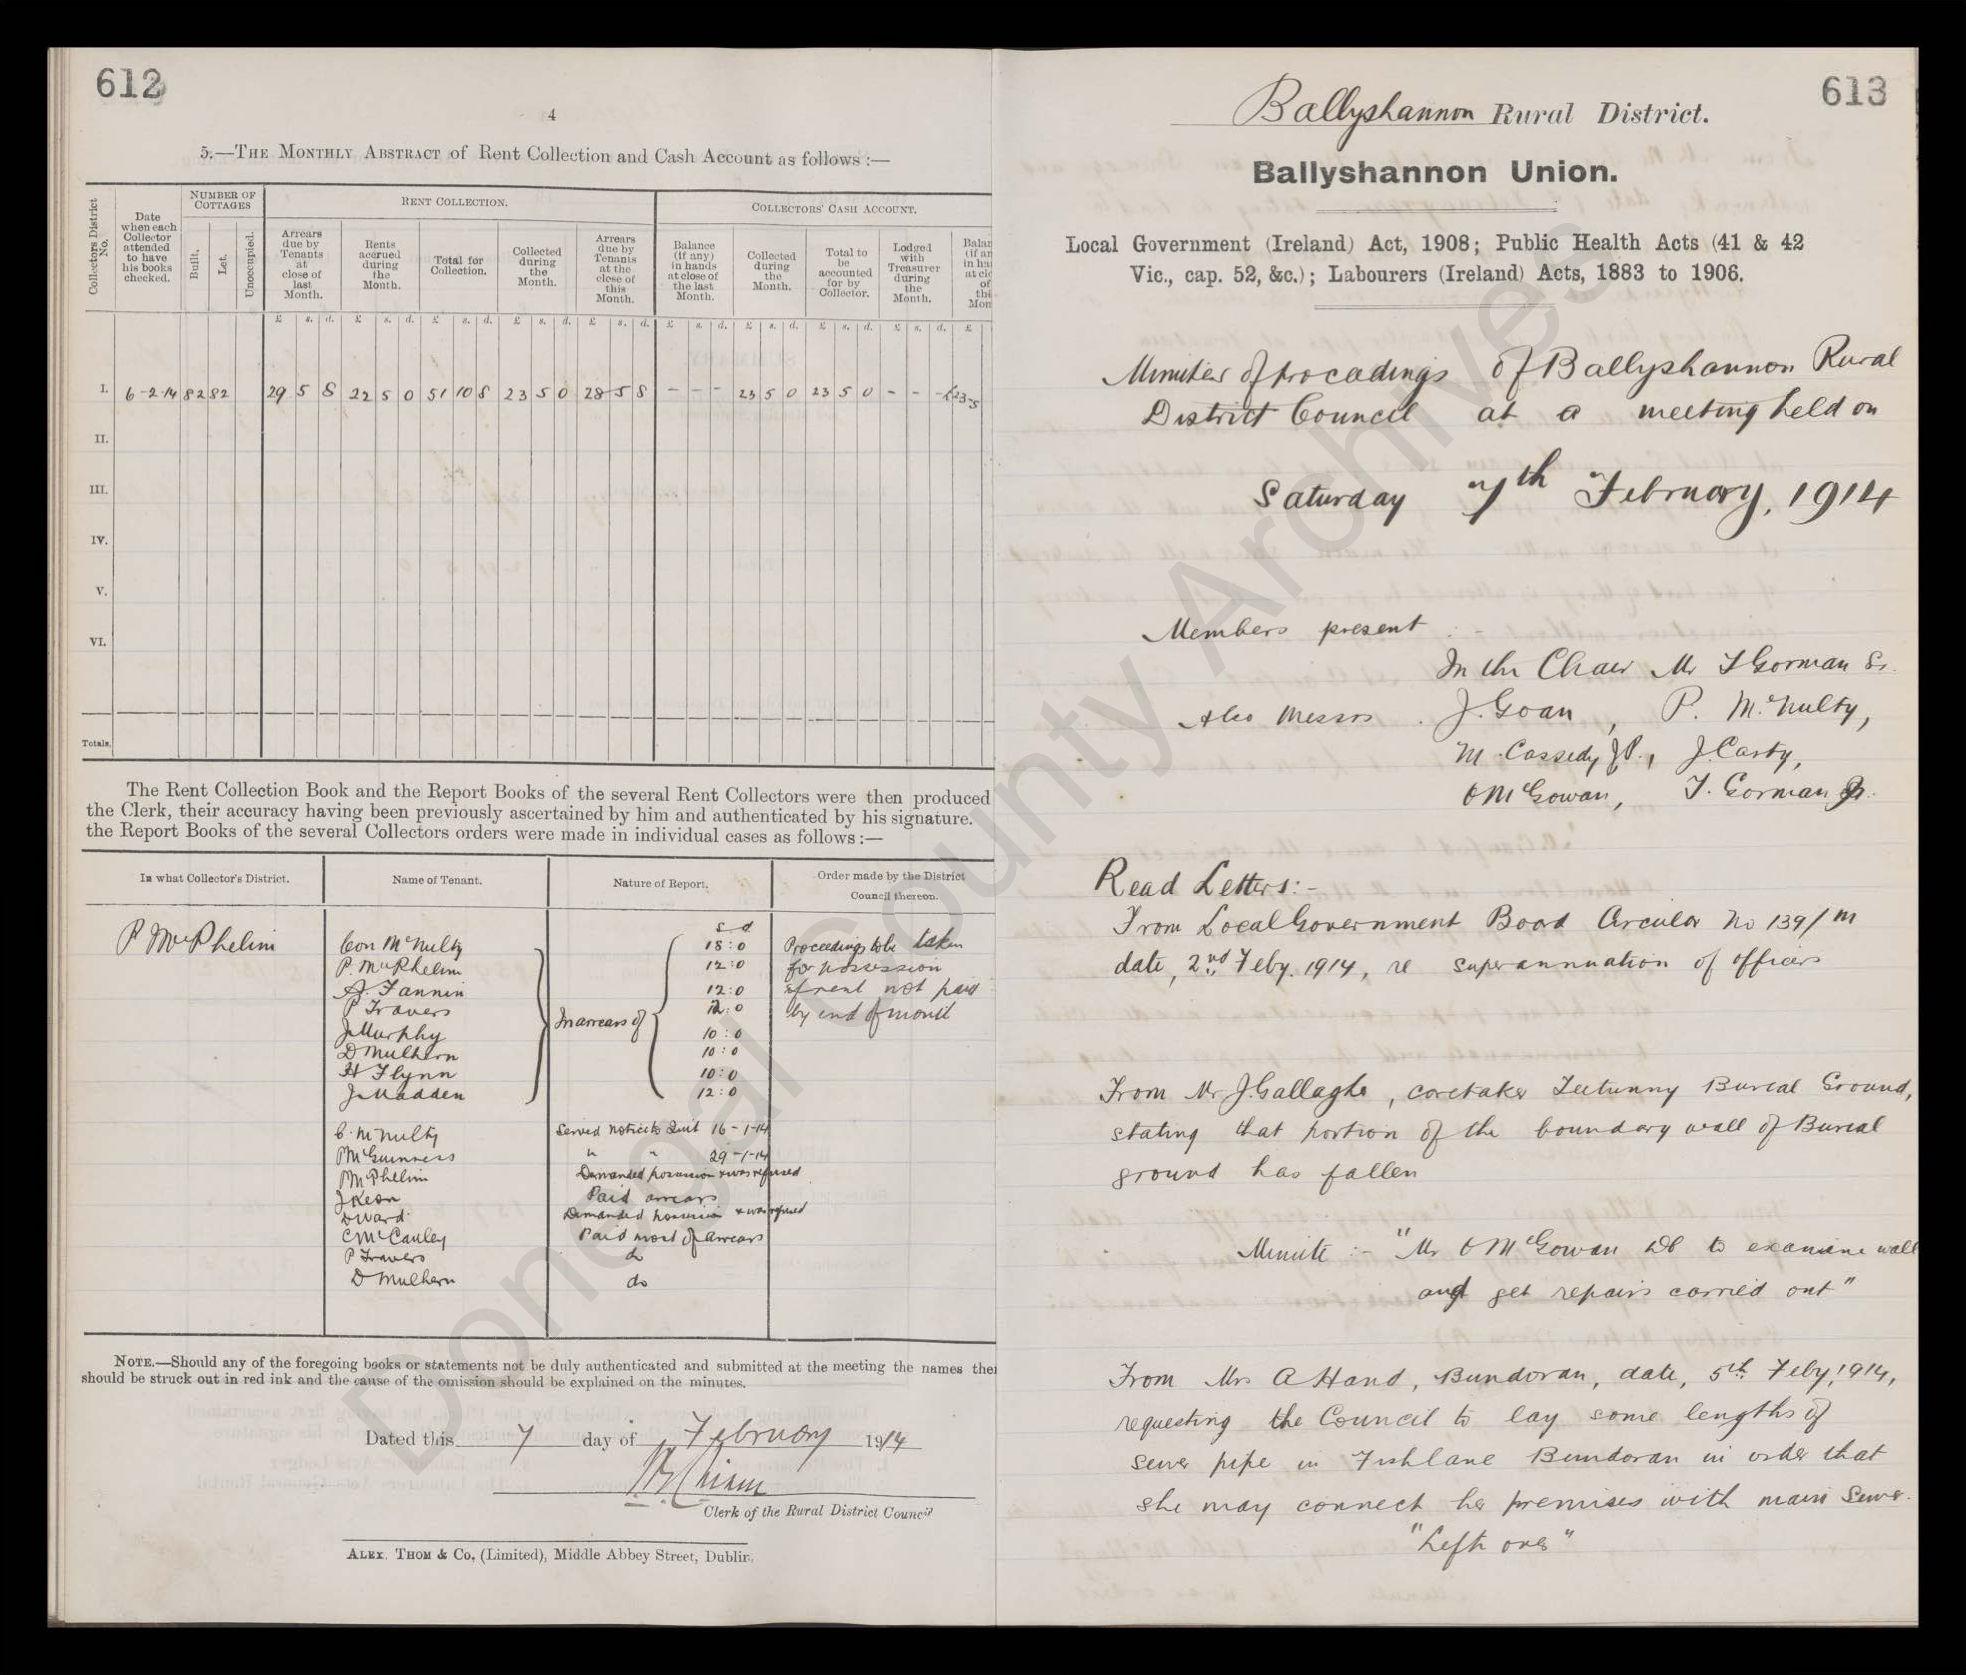 612
4
5.—THE MONTHLY ABSTRACT of Rent Collection and Cash Account as follows :—
Collectors District No.
Date when each Collector attended to have his books checked.
NUMBER OF COTTAGES
Built.
Let.
Unoccupied.
RENT COLLECTION.
Arrears due by Tenants at close of last Month.
Rents accrued during the Month.
Total for Collection.
Collected during the Month.
Arrears due by Tenants at the close of this Month.
COLLECTORS' CASH ACCOUNT.
Balance (if any) in hands at close of the last Month.
Collected during the Month.
Total to be accounted for by Collector.
Lodged with Treasurer during the Month.
Balan (if an in ha at clo of thi Mon
£ s. d. £ s. d. £ s. d. £ s. d. £ s. d. £ s. d. £ s. d. £ s. d. £ s. d. £
I. 6-2-14 82 82 29 5 8 22 5 0 51 10 8 23 5 0 28 5 8 - - - 23 5 0 23 5 0 - - - £23-5
II.
III.
IV.
V.
VI.
Totals.
The Rent Collection Book and the Report Books of the several Rent Collectors were then produced
the Clerk, their accuracy having been previously ascertained by him and authenticated by his signature.
the Report Books of the several Collectors orders were made in individual cases as follows :—
In what Collector's District. Name of Tenant. Nature of Report. Order made by the District Council thereon.
s d
P McPhelim Con McNulty 18:0 Proceedings to be taken
P. McPhelim 12:0 for possession
A. Fannin 12:0 if rent not paid
P Travers In arrears of 12:0 by end of month
J Murphy 10:0
D Mulhern 10:0
H Flynn 10:0
J Madden 12:0
C. McNulty Served notice to Quit 16-1-14
P McGuinness " " 29-1-14
P McPhelim Demanded possession & was refused
J Keon Paid arrears
D Ward Demanded possession & was refused
C McCauley Paid most of arrears
P Travers do
D Mulhern do
NOTE.—Should any of the foregoing books or statements not be duly authenticated and submitted at the meeting the names ther
should be struck out in red ink and the cause of the omission should be explained on the minutes.
Dated this 7 day of February 1914
Clerk of the Rural District Council
ALEX. THOM & Co. (Limited), Middle Abbey Street, Dublin.
613
Ballyshannon Rural District.
Ballyshannon Union.
Local Government (Ireland) Act, 1908; Public Health Acts (41 & 42
Vic., cap. 52, &c.); Labourers (Ireland) Acts, 1883 to 1906.
Minutes of procedings of Ballyshannon Rural
District Council at a meeting held on
Saturday 7th February, 1914
Members present :-
In the Chair Mr T Gorman Sr.
Also Messrs. J. Goan, P. McNulty,
M. Cassedy J.P., J. Carty,
O McGowan, T. Gorman Jr.
Read Letters:-
From Local Government Board Circular No 139/M
date, 2nd Feby. 1914, re superannuation of officers
From Mr J. Gallagher, caretaker Tuetunny Burial Ground,
stating that portion of the boundary wall of Burial
ground has fallen
Minute :- "Mr O McGowan DC to examine wall
and get repairs carried out"
From Mrs A Hand, Bundoran, date, 5th Feby, 1914,
requesting the Council to lay some lengths of
sewer pipe in Fishlane Bundoran in order that
she may connect her premises with main Sewer.
"Left over"
Donegal County Archives